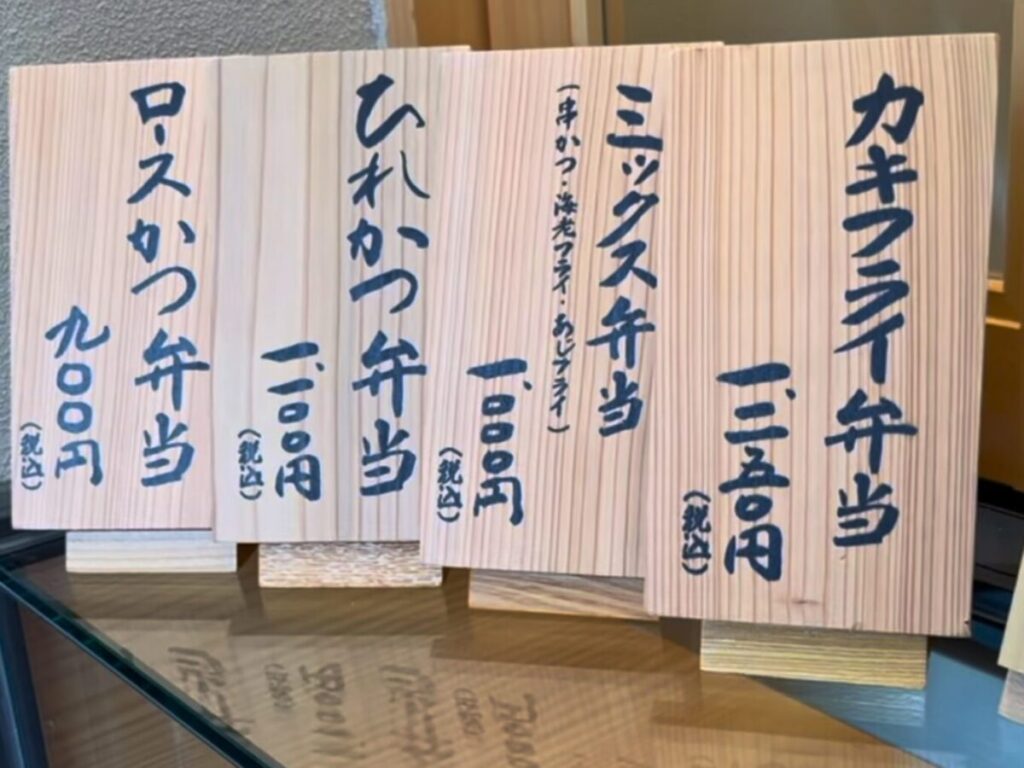 カキフライ弁当
一、二五〇円
(税込)
ミックス弁当
(串かつ・海老フライ・あじフライ)
一、〇〇〇円
(税込)
ひれかつ弁当
一、一〇〇円
(税込)
ロースかつ弁当
九〇〇円
(税込)